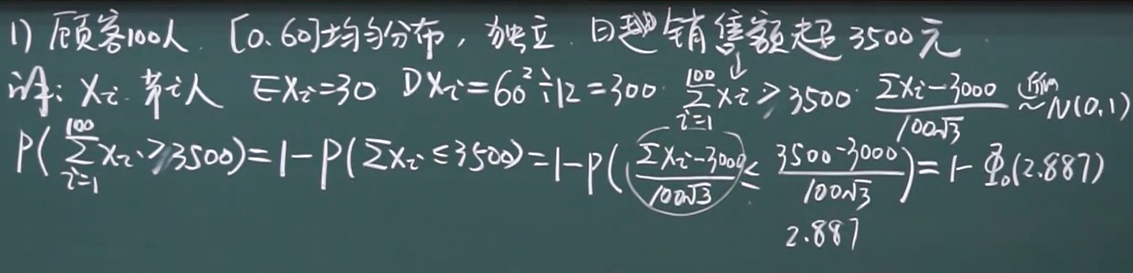 1) 顾客100人. [0.60]均匀分布, 独立. 日 销售额超 3500元
译: Xi 第i人 EXi=30 DXi=60²÷12=300. ∑_{i=1}^{100} Xi ≥ 3500. (∑Xi-3000)/(100√3) ~ N(0,1)
P(∑_{i=1}^{100} Xi ≥ 3500)=1-P(∑Xi≤3500)=1-P((∑Xi-3000)/(100√3) ≤ (3500-3000)/(100√3))=1-Φ₀(2.887)
2.887